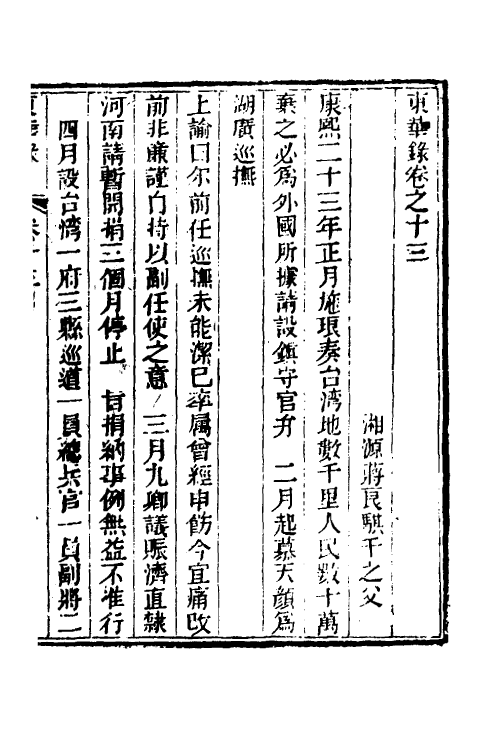 東華錄卷之十三
湘源蔣良騏千之父
康熙二十三年正月施琅奏台湾地數千里人民數十萬
棄之必為外國所據請設鎮守官弁　二月起慕天顏為
湖廣巡撫
上諭曰尔前任巡撫未能潔已率属曾經申飭今宜痛改
前非廉謹自持以副任使之意　三月九卿議賑濟直隸
河南請暫開捐三個月停止　旨捐納事例無益不准行
四月設台湾一府三縣巡道一員總兵官一員副將二